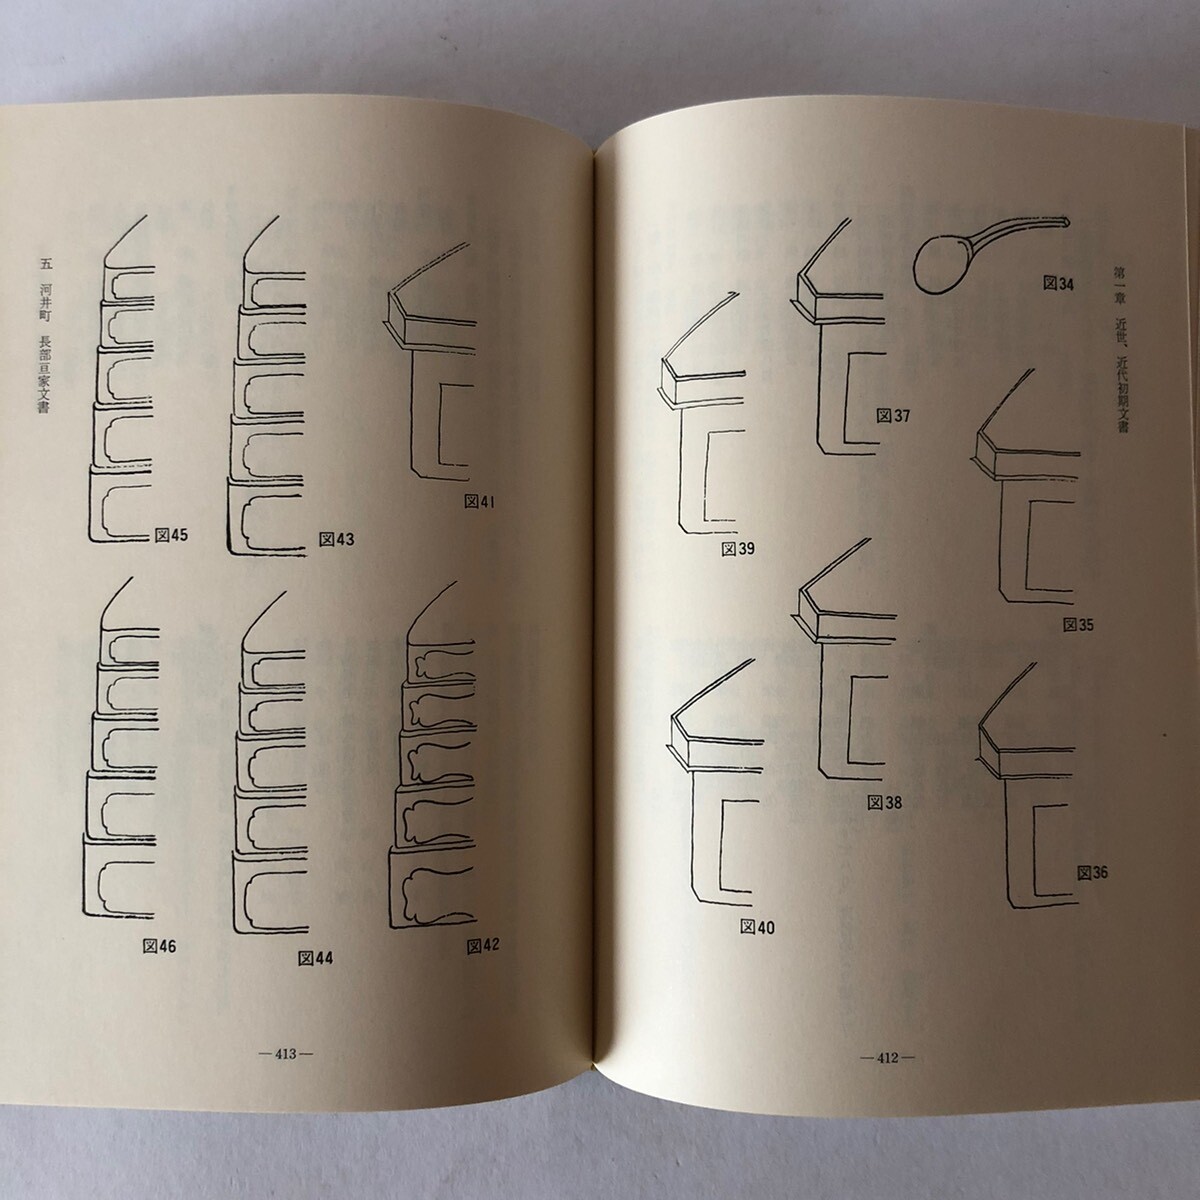 第一章　近世、近代初期文書
図34
図35
図36
図37
図38
図39
図40
—412—
五　河井町　長部亘家文書
図41
図42
図43
図44
図45
図46
—413—